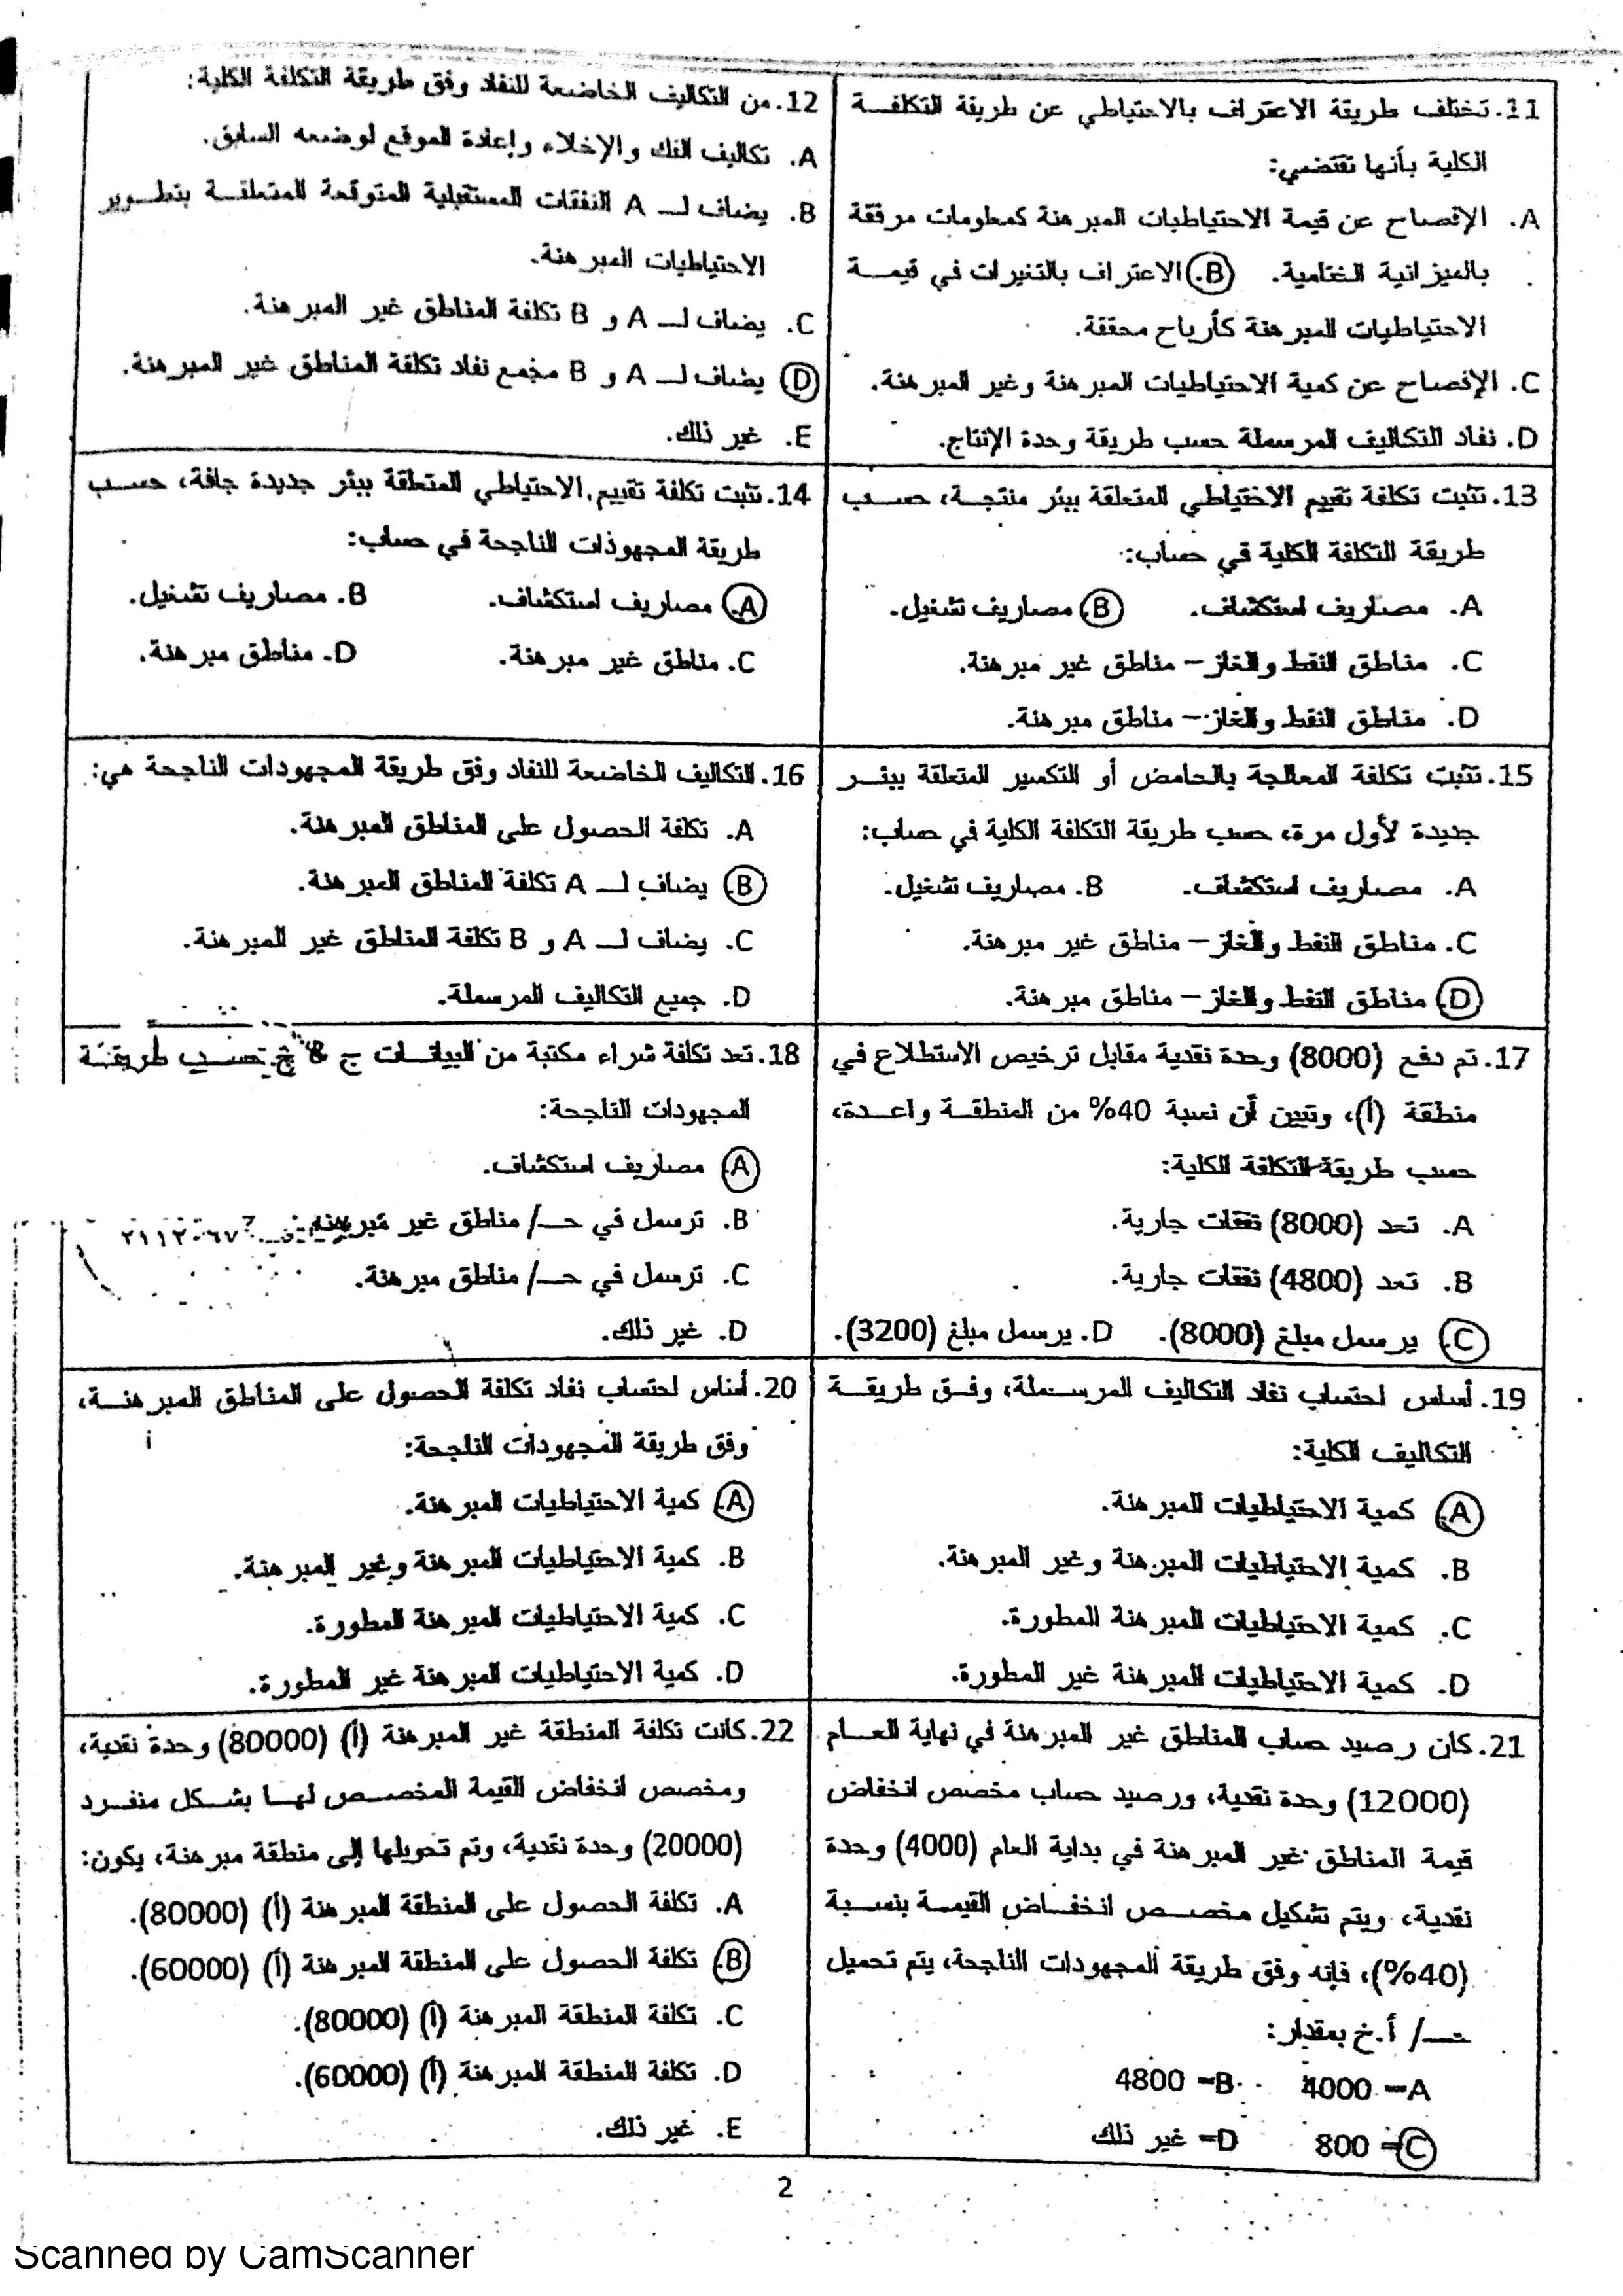 11. تختلف طريقة الاعتراف بالاحتياطي عن طريقة التكلفة
الكلية بأنها تقتضي:
A. الإفصاح عن قيمة الاحتياطيات المبرهنة كمعلومات مرفقة
بالميزانية الختامية. B. الاعتراف بالتغيرات في قيمة
الاحتياطيات المبرهنة كأرباح محققة.
C. الإفصاح عن كمية الاحتياطيات المبرهنة وغير المبرهنة.
D. نفاد التكاليف المرسملة حسب طريقة وحدة الإنتاج.
12. من التكاليف الخاضعة للنفاد وفق طريقة التكلفة الكلية:
A. تكاليف الفك والإخلاء وإعادة الموقع لوضعه السابق.
B. يضاف لـ A النفقات المستقبلية المتوقعة المتعلقة بتطوير
الاحتياطيات المبرهنة.
C. يضاف لـ A و B تكلفة المناطق غير المبرهنة.
D يضاف لـ A و B مجمع نفاد تكلفة المناطق غير المبرهنة.
E. غير ذلك.
13. تثبت تكلفة تقييم الاحتياطي المتعلقة ببئر منتجة، حسب
طريقة التكلفة الكلية في حساب:
A. مصاريف استكشاف. B. مصاريف تشغيل.
C. مناطق النفط والغاز – مناطق غير مبرهنة.
D. مناطق النفط والغاز – مناطق مبرهنة.
14. تثبت تكلفة تقييم الاحتياطي المتعلقة ببئر جديدة جافة، حسب
طريقة المجهودات الناجحة في حساب:
A. مصاريف استكشاف. B. مصاريف تشغيل.
C. مناطق غير مبرهنة. D. مناطق مبرهنة.
15. تثبت تكلفة المعالجة بالحامض أو التكسير المتعلقة ببئر
جديدة لأول مرة، حسب طريقة التكلفة الكلية في حساب:
A. مصاريف استكشاف. B. مصاريف تشغيل.
C. مناطق النفط والغاز – مناطق غير مبرهنة.
D مناطق النفط والغاز – مناطق مبرهنة.
16. التكاليف الخاضعة للنفاد وفق طريقة المجهودات الناجحة هي:
A. تكلفة الحصول على المناطق المبرهنة.
B يضاف لـ A تكلفة المناطق المبرهنة.
C. يضاف لـ A و B تكلفة المناطق غير المبرهنة.
D. جميع التكاليف المرسملة.
17. تم دفع (8000) وحدة نقدية مقابل ترخيص الاستطلاع في
منطقة (أ)، وتبين أن نسبة 40% من المنطقة واعدة،
حسب طريقة التكلفة الكلية:
A. تعد (8000) نفقات جارية.
B. تعد (4800) نفقات جارية.
C. يرسمل مبلغ (8000). D. يرسمل مبلغ (3200).
18. تعد تكلفة شراء مكتبة من البيانات ج & ج حسب طريقة
المجهودات الناجحة:
A مصاريف استكشاف.
B. ترسمل في حـ/ مناطق غير مبرهنة.
C. ترسمل في حـ/ مناطق مبرهنة.
D. غير ذلك.
19. أساس احتساب نفاد التكاليف المرسملة، وفق طريقة
التكاليف الكلية:
A. كمية الاحتياطيات المبرهنة.
B. كمية الاحتياطيات المبرهنة وغير المبرهنة.
C. كمية الاحتياطيات المبرهنة المطورة.
D. كمية الاحتياطيات المبرهنة غير المطورة.
20. أساس احتساب نفاد تكلفة الحصول على المناطق المبرهنة،
وفق طريقة المجهودات الناجحة:
A. كمية الاحتياطيات المبرهنة.
B. كمية الاحتياطيات المبرهنة وغير المبرهنة.
C. كمية الاحتياطيات المبرهنة المطورة.
D. كمية الاحتياطيات المبرهنة غير المطورة.
21. كان رصيد حساب المناطق غير المبرهنة في نهاية العام
(12000) وحدة نقدية، ورصيد حساب مخصص انخفاض
قيمة المناطق غير المبرهنة في بداية العام (4000) وحدة
نقدية، ويتم تشكيل مخصص انخفاض القيمة بنسبة
(40%)، فإنه وفق طريقة المجهودات الناجحة، يتم تحميل
حـ/ أ.خ بمقدار:
A= 4000 B= 4800
C= 800 D= غير ذلك
22. كانت تكلفة المنطقة غير المبرهنة (أ) (80000) وحدة نقدية،
ومخصص انخفاض القيمة المخصص لها بشكل منفرد
(20000) وحدة نقدية، وتم تحويلها إلى منطقة مبرهنة، يكون:
A. تكلفة الحصول على المنطقة المبرهنة (أ) (80000).
B. تكلفة الحصول على المنطقة المبرهنة (أ) (60000).
C. تكلفة المنطقة المبرهنة (أ) (80000).
D. تكلفة المنطقة المبرهنة (أ) (60000).
E. غير ذلك.
2
Scanned by CamScanner